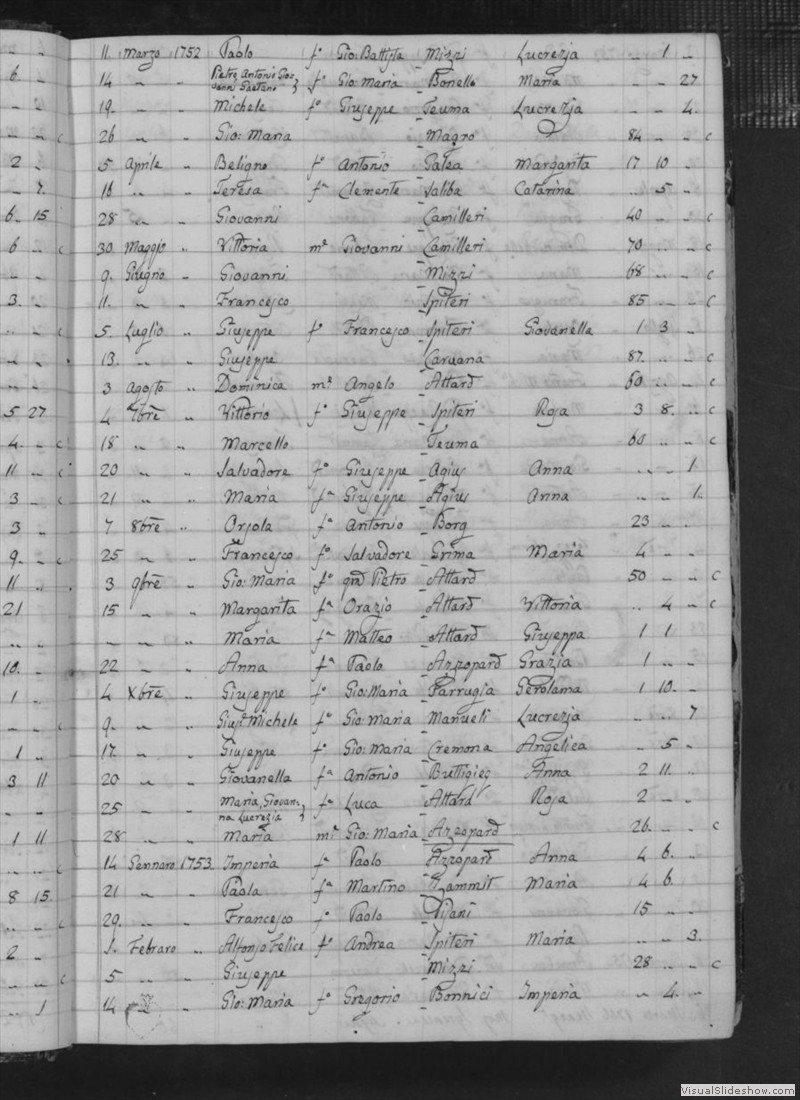 11. Marzo 1752 Paolo f° Gio: Battista Mizzi Lucrezia .. 1 ..
6 .. 14 .. .. Pietro Antonio Giovanni Gaetano } f° Gio: Maria Bonello Maria .. .. 27
.. .. 19. .. .. Michele f° Giuseppe Teuma Lucrezia .. .. 4.
.. .. c 26 .. .. Gio: Maria Magro 84 .. .. c
2 .. 5 Aprile .. Beligno f° Antonio Galea Margarita 17 10 ..
.. 7. 16 .. .. Teresa fª Clemente Saliba Catarina .. 5 ..
6. 15 28 .. .. Giovanni Camilleri 40 .. .. c
6 .. c 30 Maggio .. Vittoria mᵉ Giovanni Camilleri 70 .. .. c
.. .. 9. Giugno .. Giovanni Mizzi 68 .. .. c
3. .. 11. .. .. Francesco Spiteri 85 .. .. c
.. .. c 5. Luglio .. Giuseppe f° Francesco Spiteri Giovanella 1 3 ..
.. .. 13. .. .. Giuseppe Caruana 87. .. .. c
.. .. 3 Agosto .. Dominica mᵉ Angelo Attard 60 .. .. c
5 27 4 7bre .. Vittorio f° Giuseppe Spiteri Rosa 3 8. .. c
4. .. c 18 .. .. Marcello Teuma 60 .. .. c
11 .. c 20 .. .. Salvadore f° Giuseppe Agius Anna .. .. 1
3 .. c 21 .. .. Maria fª Giuseppe Agius Anna .. .. 1.
3 .. 7 8bre .. Orsola fª Antonio Borg 23 .. ..
9. .. c 25 .. .. Francesco f° Salvadore Grima Maria 4 .. ..
11 .. 3 9bre .. Gio: Maria f° qm Pietro Attard 50 .. .. c
21 15 .. .. Margarita fª Orazio Attard Vittoria .. 4 .. c
.. .. .. .. .. Maria fª Matteo Attard Giuseppa 1 1
10. .. 22 .. .. Anna fª Paolo Azzopard Grazia 1 .. ..
1 .. 4 Xbre .. Giuseppe f° Gio: Maria Farrugia Gerolama 1 10. ..
.. .. c 9. .. .. Giuse Michele f° Gio: Maria Manueli Lucrezia .. .. 7
1 .. 17. .. .. Giuseppe f° Gio: Maria Cremona Angelica .. 5 ..
3 11 20 .. .. Giovanella fª Antonio Buttigieg Anna 2 11. ..
.. .. 25 .. .. Maria, Giovanna Lucrezia } fª Luca Attard Rosa 2 .. ..
1 11 28 .. .. Maria mᵉ Gio: Maria Azzopard 26. .. .. c
.. .. c 14 Gennaro 1753. Imperia fª Paolo Azzopard Anna 4 6. ..
8 15. 21 .. .. Paola fª Martino Zammit Maria 4 6.
.. .. c 29. .. .. Francesco f° Paolo Pisani 15 .. ..
2 .. 1. Febraro .. Alfonso Felice f° Andrea Spiteri Maria .. .. 3.
.. .. c 5 .. .. Giuseppe Mizzi 28 .. .. c
.. 1 14 .. .. Gio: Maria f° Gregorio Bonnici Imperia .. 4. ..
VisualSlideshow.com